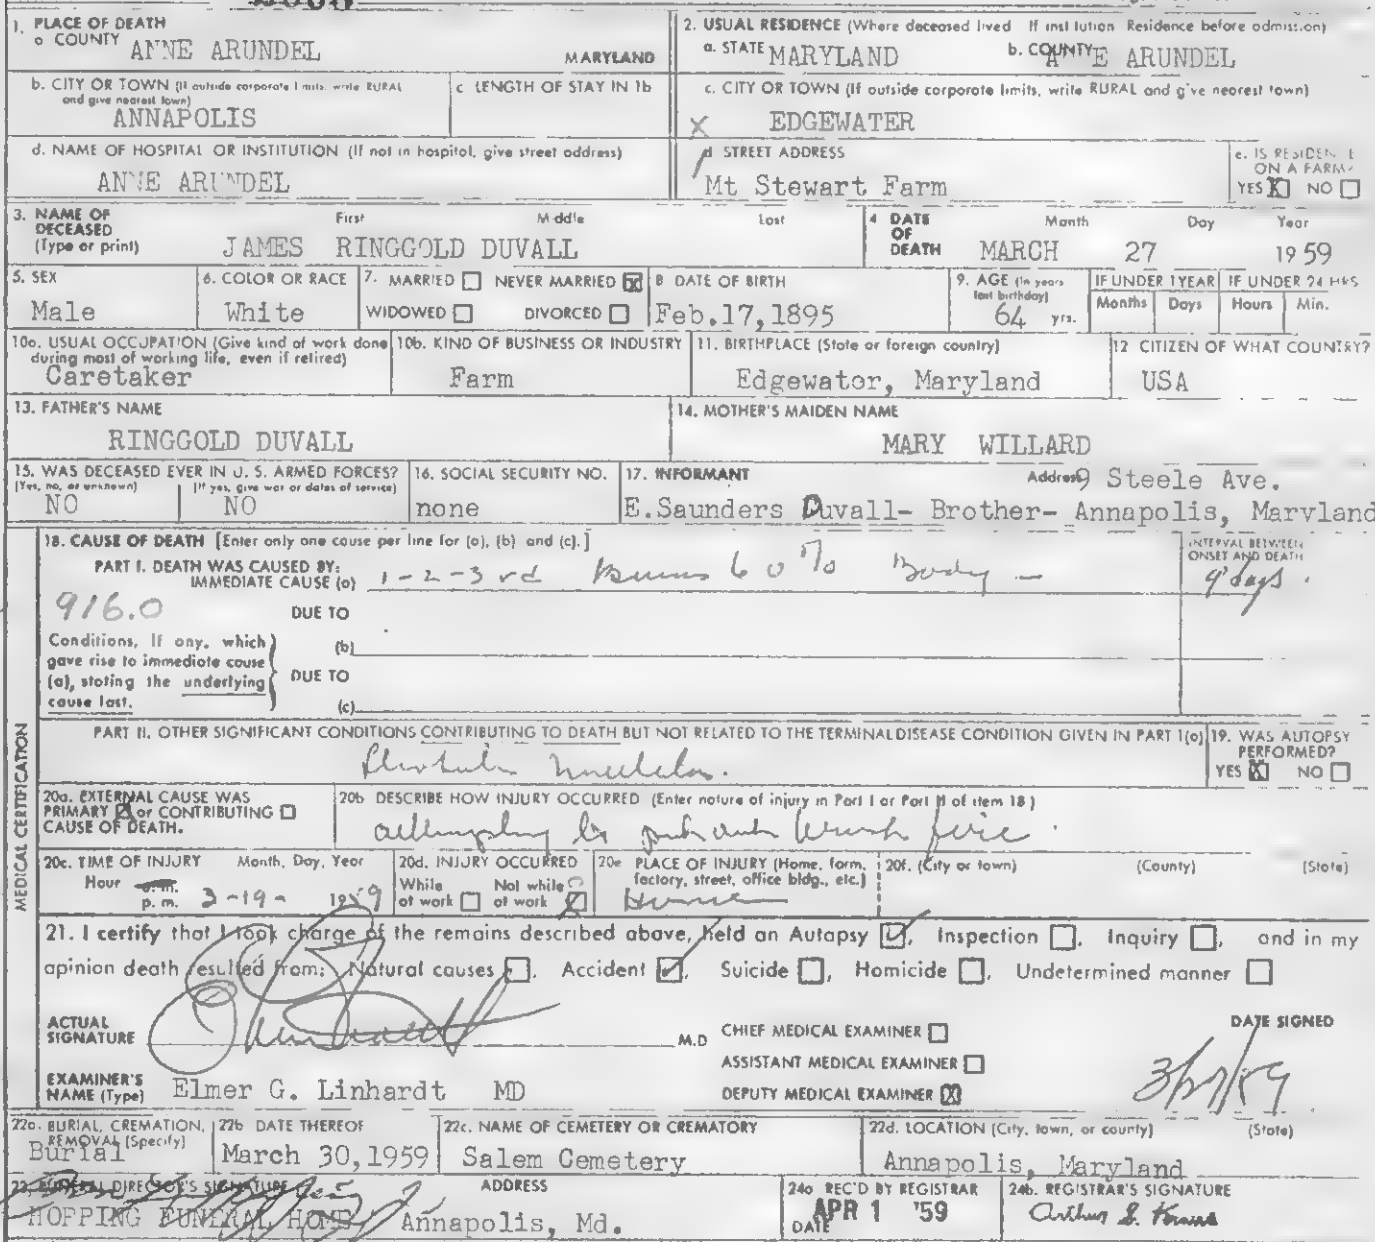 1. PLACE OF DEATH
a COUNTY ANNE ARUNDEL MARYLAND
2. USUAL RESIDENCE (Where deceased lived If institution Residence before admission)
a. STATE MARYLAND b. COUNTY E ARUNDEL
b. CITY OR TOWN (If outside corporate limits, write RURAL and give nearest town)
ANNAPOLIS
c LENGTH OF STAY IN 1b
c. CITY OR TOWN (If outside corporate limits, write RURAL and give nearest town)
X EDGEWATER
d. NAME OF HOSPITAL OR INSTITUTION (If not in hospital, give street address)
ANNE ARUNDEL
d STREET ADDRESS
Mt Stewart Farm
e. IS RESIDENCE ON A FARM?
YES X NO
3. NAME OF DECEASED (Type or print)
First Middle Last
JAMES RINGGOLD DUVALL
4 DATE OF DEATH
Month Day Year
MARCH 27 1959
5. SEX
Male
6. COLOR OR RACE
White
7. MARRIED NEVER MARRIED X
WIDOWED DIVORCED
8 DATE OF BIRTH
Feb.17,1895
9. AGE (In years last birthday)
64 yrs.
IF UNDER 1 YEAR
Months Days
IF UNDER 24 HRS
Hours Min.
10a. USUAL OCCUPATION (Give kind of work done during most of working life, even if retired)
Caretaker
10b. KIND OF BUSINESS OR INDUSTRY
Farm
11. BIRTHPLACE (State or foreign country)
Edgewator, Maryland
12 CITIZEN OF WHAT COUNTRY?
USA
13. FATHER'S NAME
RINGGOLD DUVALL
14. MOTHER'S MAIDEN NAME
MARY WILLARD
15. WAS DECEASED EVER IN U. S. ARMED FORCES?
(Yes, no, or unknown) (If yes, give war or dates of service)
NO NO
16. SOCIAL SECURITY NO.
none
17. INFORMANT Address 9 Steele Ave.
E.Saunders Duvall- Brother- Annapolis, Maryland
MEDICAL CERTIFICATION
18. CAUSE OF DEATH [Enter only one cause per line for (a), (b) and (c).]
PART I. DEATH WAS CAUSED BY:
IMMEDIATE CAUSE (a) 1-2-3rd Burns 60% Body -
INTERVAL BETWEEN ONSET AND DEATH
9 days.
916.0
DUE TO
Conditions, if any, which gave rise to immediate cause (a), stating the underlying cause last.
(b)
DUE TO
(c)
PART II. OTHER SIGNIFICANT CONDITIONS CONTRIBUTING TO DEATH BUT NOT RELATED TO THE TERMINAL DISEASE CONDITION GIVEN IN PART 1(a)
19. WAS AUTOPSY PERFORMED?
YES X NO
20a. EXTERNAL CAUSE WAS
PRIMARY X or CONTRIBUTING
CAUSE OF DEATH.
20b DESCRIBE HOW INJURY OCCURRED (Enter nature of injury in Part I or Part II of item 18)
attempting to put out brush fire.
20c. TIME OF INJURY Month, Day, Year
Hour a.m.
p. m. 3-19- 1959
20d. INJURY OCCURRED
While at work Not while at work
20e PLACE OF INJURY (Home, farm, factory, street, office bldg., etc.)
Home
20f. (City or town) (County) (State)
21. I certify that I took charge of the remains described above, held an Autopsy, Inspection, Inquiry, and in my
opinion death resulted from: Natural causes, Accident, Suicide, Homicide, Undetermined manner
ACTUAL SIGNATURE M.D
CHIEF MEDICAL EXAMINER
ASSISTANT MEDICAL EXAMINER
DEPUTY MEDICAL EXAMINER X
DATE SIGNED
3/27/59
EXAMINER'S NAME (Type) Elmer G. Linhardt MD
22a. BURIAL, CREMATION, REMOVAL (Specify)
Burial
22b DATE THEREOF
March 30,1959
22c. NAME OF CEMETERY OR CREMATORY
Salem Cemetery
22d. LOCATION (City, town, or county) (State)
Annapolis, Maryland
23. FUNERAL DIRECTOR'S SIGNATURE ADDRESS
HOPPING FUNERAL HOME Annapolis, Md.
24a REC'D BY REGISTRAR
DATE APR 1 '59
24b. REGISTRAR'S SIGNATURE